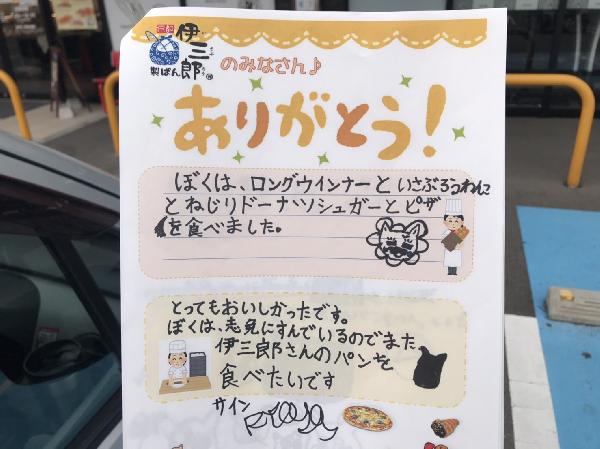 伊三郎
製ぱん
のみなさん♪
ありがとう！
ぼくは、ロングウインナーと いさぶろうわんこ
とねじりドーナツシュガーとピザ
を食べました。
とってもおいしかったです。
ぼくは、志免にすんでいるのでまた
伊三郎さんのパンを
食べたいです
サイン